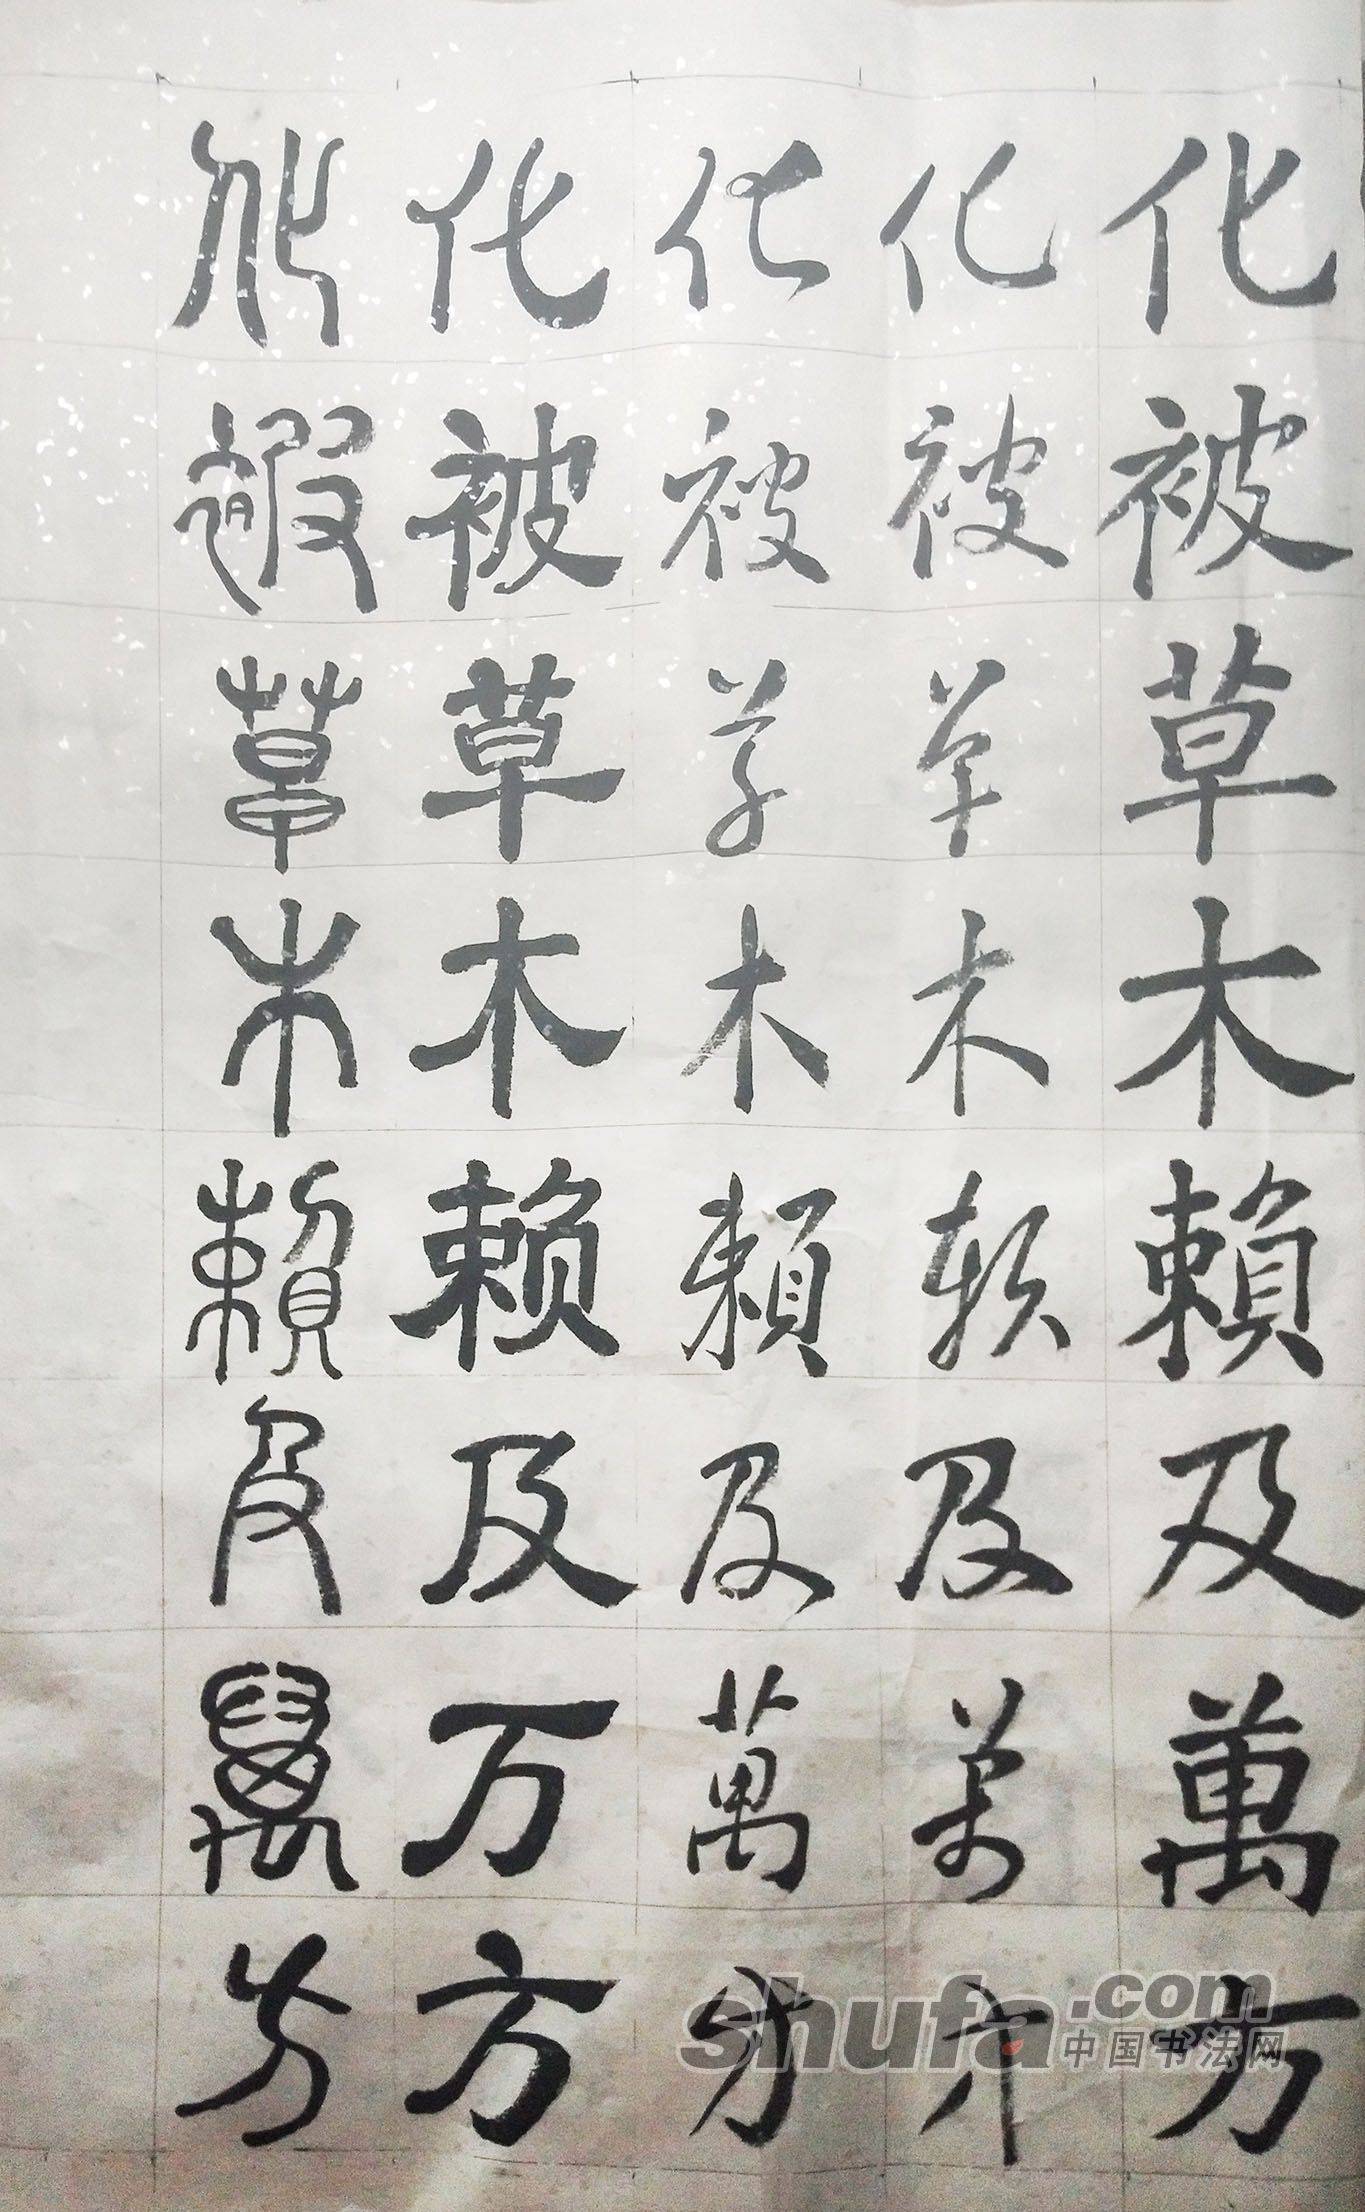 化被草木賴及萬方
化被草木赖及万方
化被草木賴及萬方
化被草木赖及万方
化被草木賴及萬方
shufa.com
中国书法网